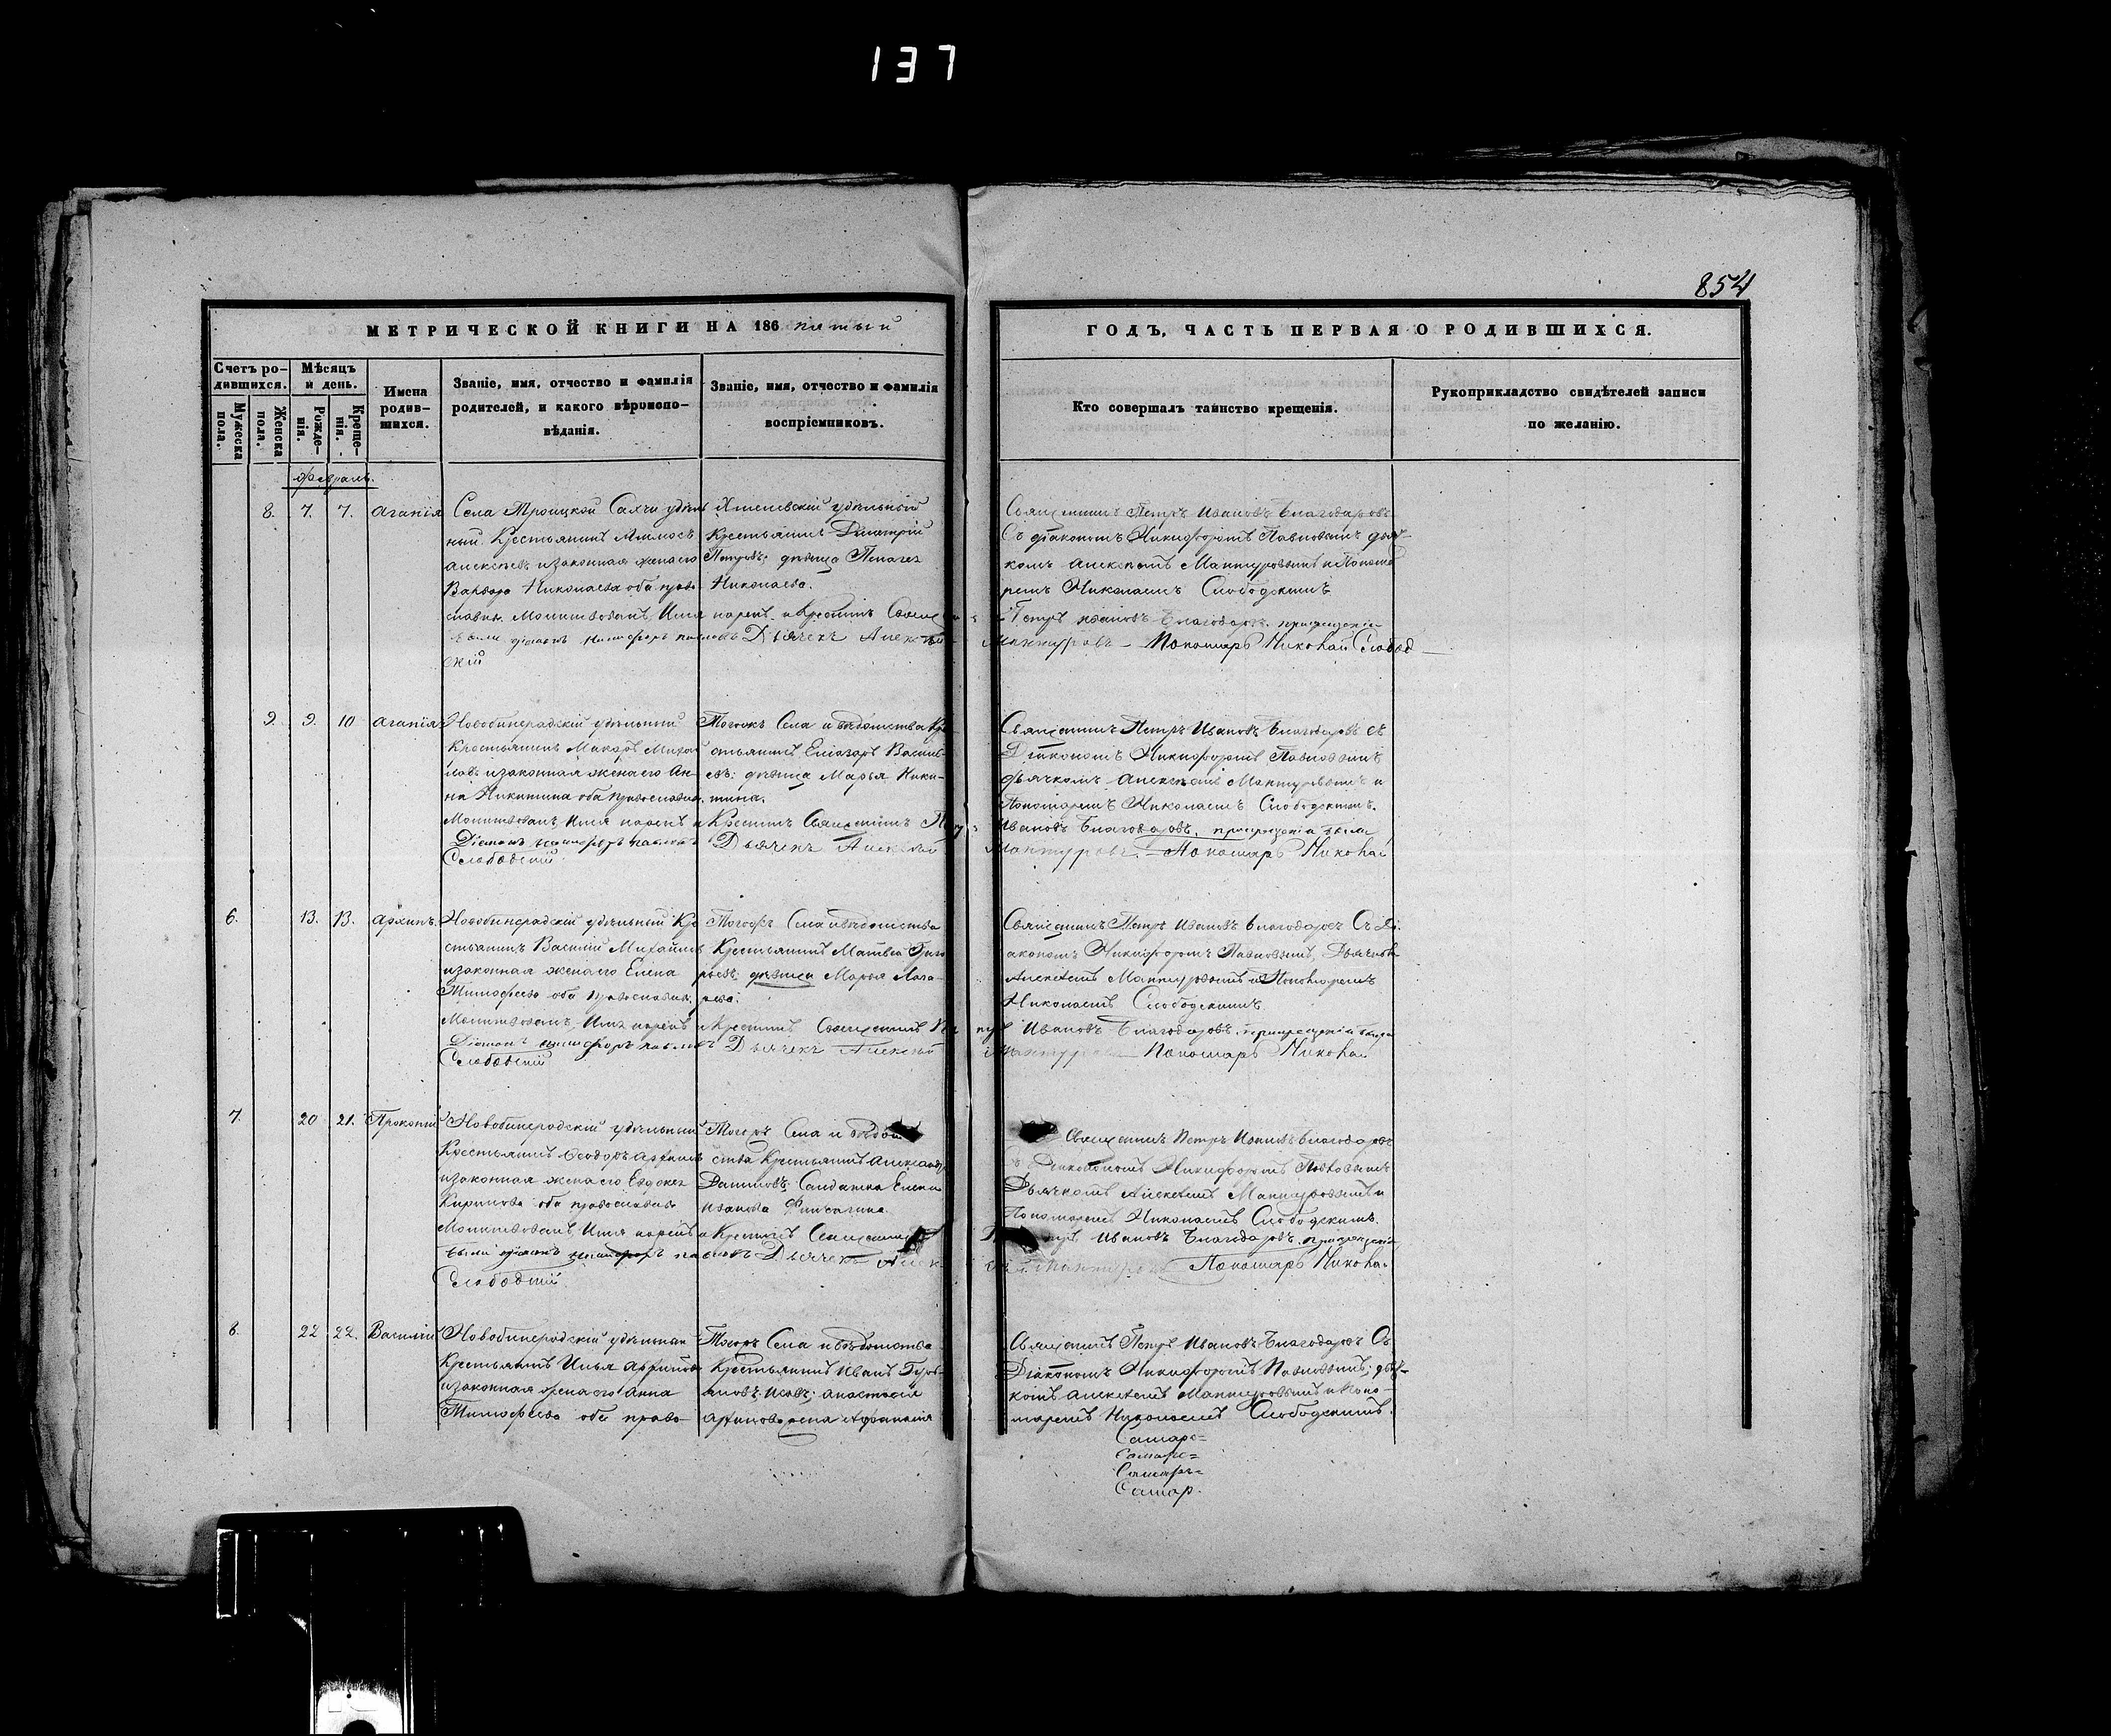 137
854
МЕТРИЧЕСКОЙ КНИГИ НА 186 пятый
ГОДЪ, ЧАСТЬ ПЕРВАЯ О РОДИВШИХСЯ.
Счетъ ро-
дившихся.
Мѣсяцъ
и день.
Мужеска
пола.
Женска
пола.
Рожде-
нія.
Креще-
нія.
Имена
родив-
шихся.
Званіе, имя, отчество и фамилія
родителей, и какого вѣроиспо-
вѣданія.
Званіе, имя, отчество и фамилія
воспріемниковъ.
Кто совершалъ таинство крещенія.
Рукоприкладство свидѣтелей записи
по желанію.
Февраль.
8. 7. 7. Агапія
Села Троицкой Салчи удѣль
ный Крестьянинъ
Алексѣевъ и законная жена его
Варвара Николаева оба право-
славн. Молитвовалъ, Имя
удѣльный
Крестьянинъ Димитрій
Петровъ; дѣвица Пелагея
Николаева.
нарекъ и Крестилъ Свящ
Дьячекъ Алексѣй
Священникъ Петръ Ивановъ Благодаровъ
Съ діакономъ Никифоромъ Павловымъ дьяч-
комъ Алексѣемъ Мантуровымъ и Понома
ремъ Николаемъ Слободскимъ
Петръ Ивановъ Благодаровъ.
Мантуровъ — Пономарь Николай Слобод
скій
9. 9. 10 Агапія
удѣльный
Крестьянинъ Макаръ Михай
ловъ и законная жена его Ан-
на Никитина оба православн.
Молитвовалъ, Имя нарекъ и
Діаконъ Никифоръ Павловъ
Слободскій
Тогожъ Села и вѣдомства Кре
стьянинъ Елеазаръ Василь
евъ; дѣвица Марья Ники-
тина.
Крестилъ Священникъ Петр
Дьячекъ Алексѣй
Священникъ Петръ Ивановъ Благодаровъ съ
Діакономъ Никифоромъ Павловымъ
дьячкомъ Алексѣемъ Мантуровымъ и
Пономаремъ Николаемъ Слободскимъ.
Ивановъ Благодаровъ. при крещеніи были
Мантуровъ. — Пономарь Николай
6. 13. 13. Архипъ.
удѣльный Кре
стьянинъ Василій Михайловъ
и законная жена его Елена
Тимофеева оба православн.
Молитвовалъ, Имя нарекъ
Діаконъ Никифоръ Павловъ
Слободскій
Тогожъ Села и вѣдомства
Крестьянинъ Матвѣй Григо
рьевъ; дѣвица Марья Лаза-
рева.
и Крестилъ Священникъ Пе
Дьячекъ Алексѣй
Священникъ Петръ Ивановъ Благодаровъ Съ Ді
акономъ Никифоромъ Павловымъ, Дьячкомъ
Алексѣемъ Мантуровымъ и Пономаремъ
Николаемъ Слободскимъ
тръ Ивановъ Благодаровъ. при крещеніи были
Мантуровъ — Пономарь Николай
7. 20 21. Прокопій
удѣльный
Крестьянинъ Ѳеодоръ Архиповъ
и законная жена его Евдокея
Кирилова оба православн
Молитвовалъ, Имя нарекъ
были діаконъ Никифоръ Павловъ
Слободскій
Тогожъ Села и вѣдом
ства Крестьянинъ Александръ
Даниловъ; Солдатка Елена
Иванова
и Крестилъ Священник
Дьячекъ Алек
Священникъ Петръ Ивановъ Благодаровъ
Съ Діакономъ Никифоромъ Павловымъ
Дьячкомъ Алексѣемъ Мантуровымъ и
Пономаремъ Николаемъ Слободскимъ.
Петръ Ивановъ Благодаровъ. при крещеніи
Мантуровъ Пономарь Николай
8. 22 22. Василій
удѣльный
Крестьянинъ Илья Архиповъ
и законная жена его Анна
Тимофеева оба право-
Тогожъ Села и вѣдомства
Крестьянинъ Иванъ
Анастасія
Священникъ Петръ Ивановъ Благодаровъ Съ
Діакономъ Никифоромъ Павловымъ; дьяч-
комъ Алексѣемъ Мантуровымъ и Поно-
маремъ Николаемъ Слободскимъ.
Самарс=
Самарс=
Самарс=
Самар.